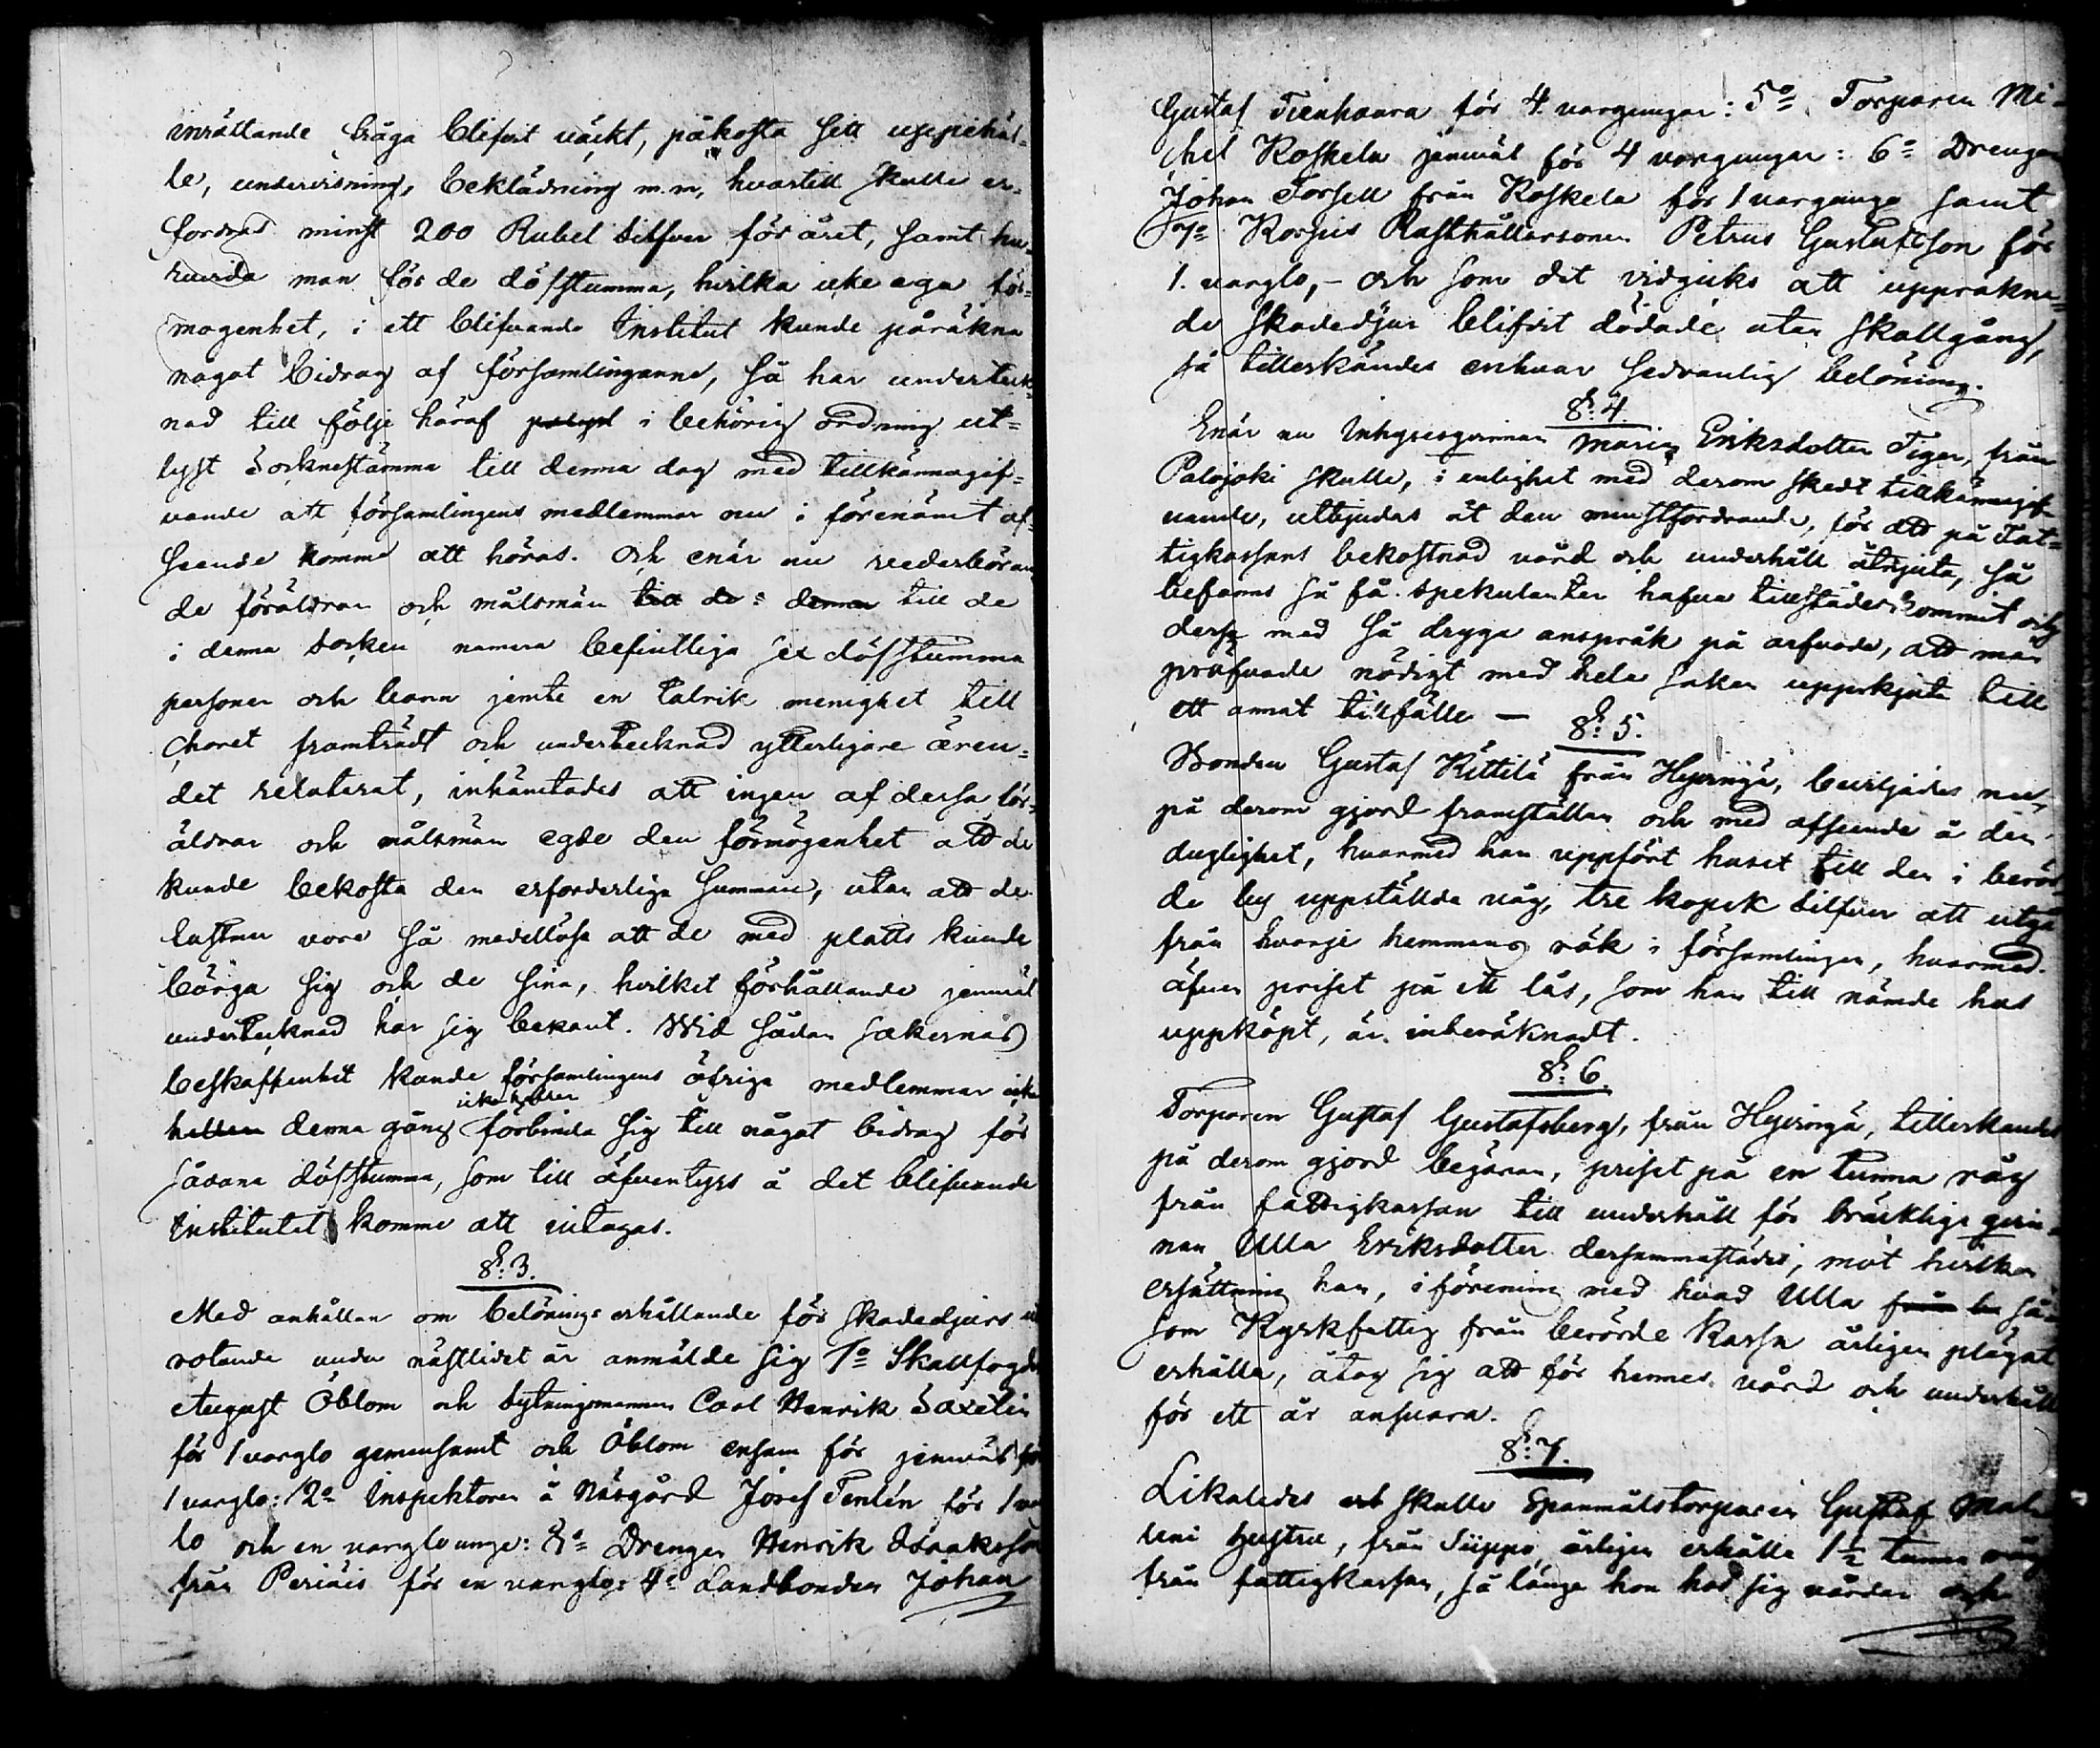 inrättande fråga blifvit väckt, påkosta sitt uppehäl-
le, undervisning, beklädning m.m, hvartill skulle er-
fordras minst 200 Rubel Silfver för året, samt hu-
ruvida man för de döfstumma, hvilka icke ega för-
mögenhet, i ett blifvande Institut kunde påräkna
något bidrag af församlingarne, så har underteck-
nad till följe häraf i behörig ordning ut-
lyst Socknestämma till denna dag med tillkännagif-
vande att församlingens medlemmar nu i förenämt af-
seende komme att höras. Och enär nu vederböran
de föräldrar och målsmän till de: denna till de
i denna Socken numera befintliga sex döfstumma
personer och barn jemte en talrik menighet till
Choret framträdt och undertecknad ytterligare ären-
det relaterat, inhämtades att ingen af dessa för-
äldrar och målsmän egde den förmögenhet att de
kunde bekosta den erforderliga summan, utan att de
fastmer vore så medellösa att de med platts kunde
bärga sig och de sina, hvilket förhållande jemväl
undertecknad har sig bekant. Wid sådan sakernas
beskaffenhet kunde församlingens öfriga medlemmar icke
icke heller
heller denna gång förbinda sig till något bidrag för
sådana döfstumma, som till äfventyrs å det blifvande
Institutet komme att intagas.
§: 3.
Med anhållan om belönings erhållande för skadedjurs ut
rotande under nästlidet år anmälde sig 1o Skallfogden
August Öblom och Sytningsmannen Carl Henrik Saxelin
för 1 varglo gemensamt och Öblom ensam för jemväl för
1 varglo: 2o Inspektoren å Näsgård Josef Tenlén för 1 varg
lo och en varglounge: 3o Drengen Henrik Isaaksson
från Perinis för en varglo: 4o Landbonden Johan
Gustaf Tienhaara för 4 vargungar: 5o Torparen Mi-
chel Koskela jemväl för 4 vargungar: 6o Drengen
Johan Forsell från Koskela för 1 vargunge samt
7o Korpis Rusthållarsonen Petrus Gustafsson för
1. varglo, - och som det vidgicks att uppräkna-
de skadedjur blifvit dödade utan skallgång,
så tillerkändes enhvar sedvanlig belöning.
§: 4.
Enär nu Inhysesqvinnan Maria Eriksdotter Tiger, från
Palojoki skulle, i enlighet med derom skedt tillkännagif-
vande, utbjudas åt den minstfordrande, för att på Fat-
tigkassans bekostnad vård och underhåll åtnjuta, så
befanns så få spekulanter hafva tillstädeskommit och
dessa med så dryga anspråk på arfvode, att man
pröfvade nödigt med hela saken uppskjuta till
ett annat tillfälle —
§: 5.
Bonden Gustaf Kittilä från Hyvingä, beviljades nu,
på derom gjord framställan och med afseende å den
duglighet, hvarmed han uppfört huset till den i berör-
de by uppställda våg, tre kopek Silfver att utgå
från hvarje hemmans rök i församlingen, hvarmed
äfven priset på ett lås, som han till nämde hus
uppköpt, är inberäknadt.
§: 6.
Torparen Gustaf Gustafsberg, från Hyvingä, tillerkändes
på derom gjord begäran, priset på en tunna råg
från fattigkassan till underhåll för bräckliga qvin-
nan Ulla Eriksdotter dersammastädes, mot hvilken
ersättning han, i förening med hvad Ulla så-
som Kyrkfattig från berörde Kassa årligen plägat
erhålla, åtog sig att för hennes vård och underhåll
för ett år ansvara.
§: 7.
Likaledes skulle Spanmålstorparen Gustaf Mat-
leni hustru, från Siippo, årligen erhålla 1½ tunna råg
från fattigkassan, så länge hon hos sig vårdar och